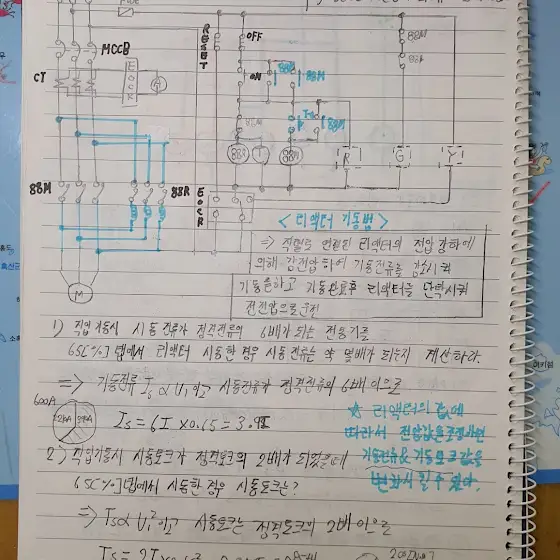 MCCB
CT
EOCR
A
RESET
OFF
ON
88M
88M
88R
88M
88R
T
88M
R
G
Y
88M
88R
EOCR
M
< 리액터 기동법 >
⇒ 직렬로 연결된 리액터의 전압강하에
의해 감전압하여 기동전류를 감소시켜
기동을하고 기동완료후 리액터를 단락시켜
전전압으로 운전
1) 직입기동시 시동전류가 정격전류의 6배가 되는 전동기를
65[%]탭에서 리액터 시동한 경우 시동전류는 약 몇배가 되는지 계산하라.
⇒ 기동전류 Is ∝ V1이고 시동전류가 정격전류의 6배이므로
600A
Is = 6I × 0.65 = 3.9I
☆ 리액터의 값에
따라서 전압값을
기동전류&기동토크값을
변화시킬수 있다.
2) 직입기동시 시동토크가 정격토크의 2배가 되었을때
65[%]탭에서 시동한 경우 시동토크는?
⇒ Ts ∝ V1²이고 시동토크는 정격토크의 2배이므로